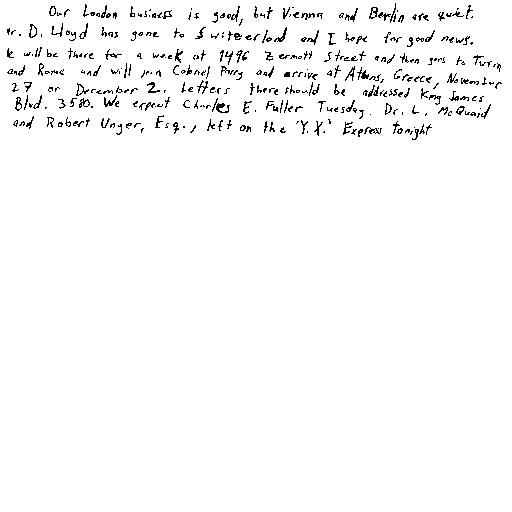 Our London business is good, but Vienna and Berlin are quiet.
Mr. D. Lloyd has gone to Switzerland and I hope for good news.
He will be there for a week at 1496 Zermott Street and then goes to Turin
and Rome and will join Colonel Parry and arrive at Athens, Greece, November
27 or December 2. Letters there should be addressed King James
Blvd. 3580. We expect Charles E. Fuller Tuesday. Dr. L. McQuaid
and Robert Unger, Esq., left on the 'Y.X.' Express tonight